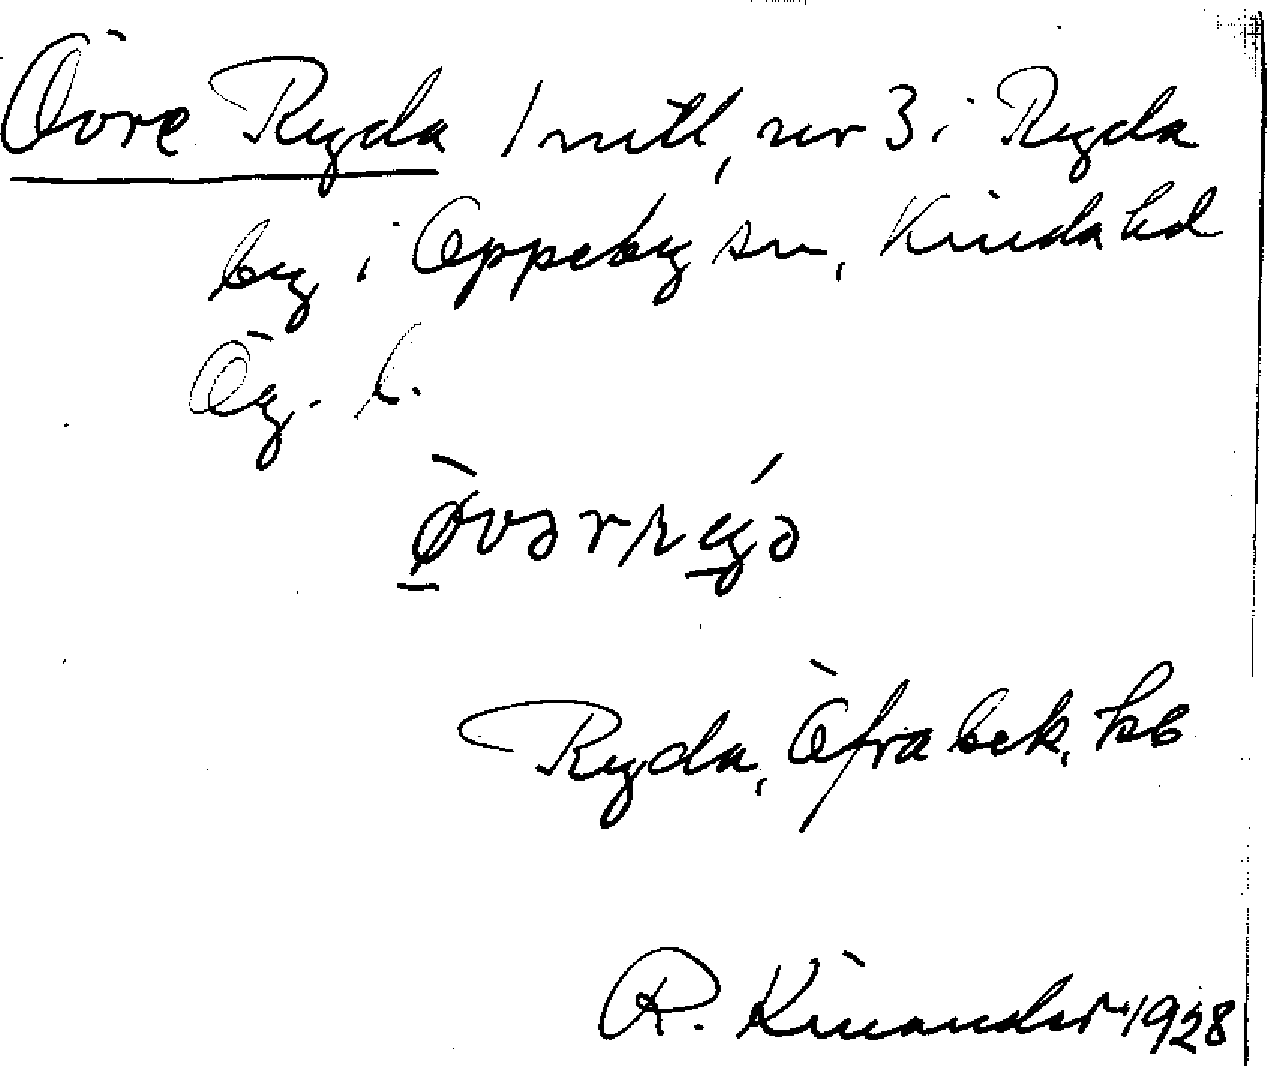 Övre Ryda 1 mtl, nr 3 i Ryda
by i Oppeby sn, Kinda hd
Ög. l.
Ryda, Öfra bek. kb
R. Kinander 1928